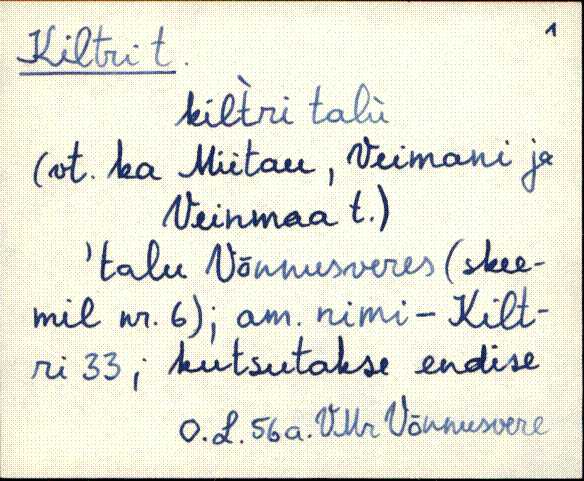 1
Kiltri t.
kilt̀ri talù
(vt. ka Miitau, Veimani ja
Veinmaa t.)
'talu Võnnusveres (skee-
mil nr. 6); am. nimi - Kilt-
ri 33; kutsutakse endise
O.L. 56 a. VMr Võnnusvere